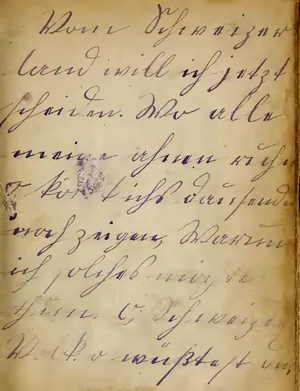 Vom Schweizer
land will ich jetzt
scheiden. Wo alle
meine ahnen ruhn
o könt ichs dausenden
noch zeigen, Warum
ich solches möchte
thun. O, Schweizer
Volk o wüßtest du